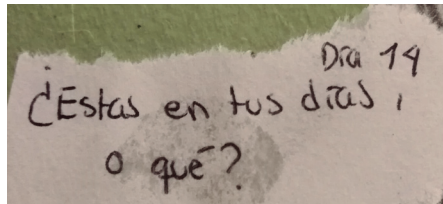 Día 14
¿Estas en tus días,
o qué?